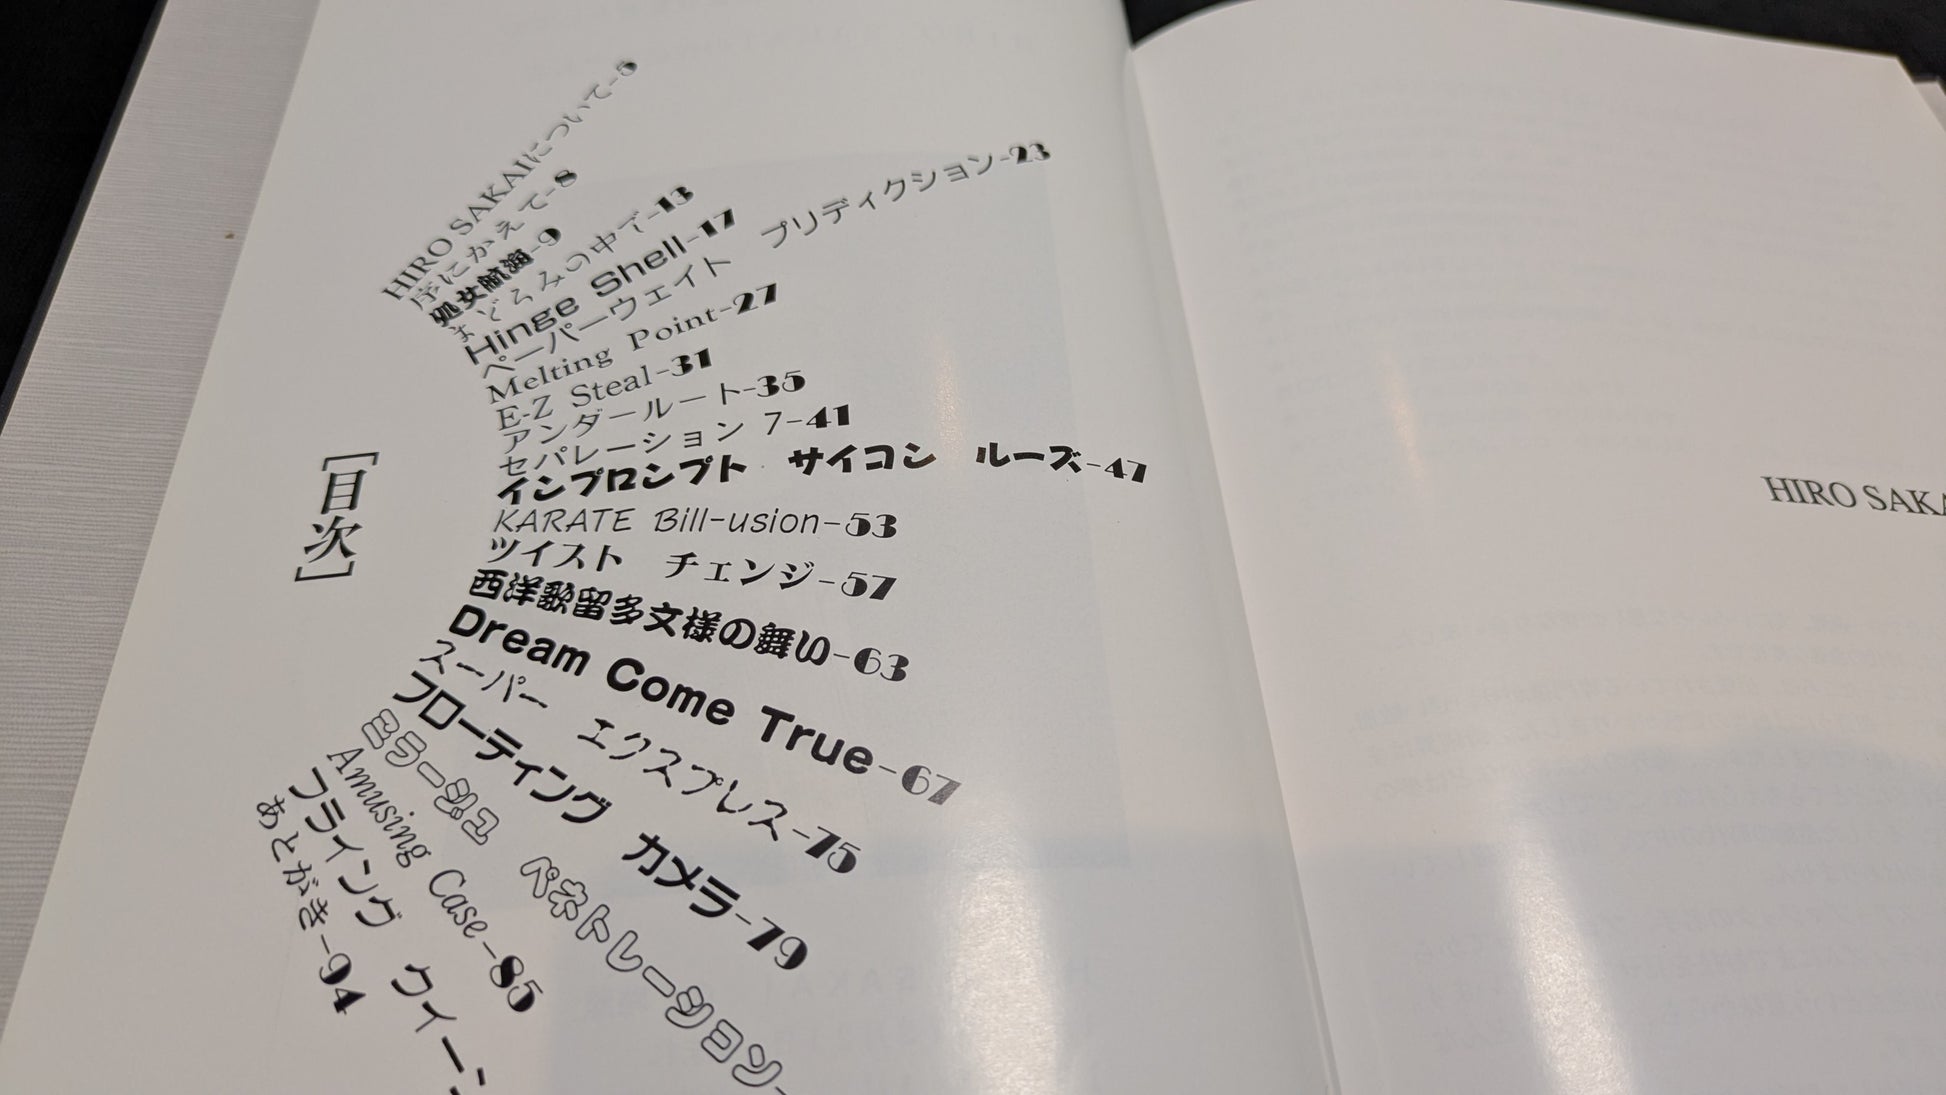 [目次]
HIRO SAKAIについて-5
序にかえて-8
処女航海-9
まどろみの中で-13
Hinge Shell-17
ペーパーウェイト プリディクション-23
Melting Point-27
E-Z Steal-31
アンダールート-35
セパレーション 7-41
インプロンプト サイコン ルーズ-47
KARATE Bill-usion-53
ツイスト チェンジ-57
西洋歌留多文様の舞い-63
Dream Come True-67
スーパー エクスプレス-75
フローティング カメラ-79
ミラージュ ペネトレーション-
Amusing Case-85
フライング クィーン
あとがき-94
HIRO SAKA